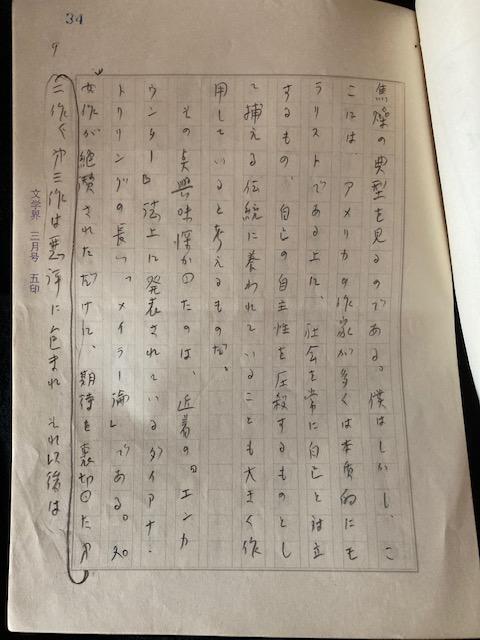 34
9
焦燥の典型を見るのである。僕はしかし、こ
こには、アメリカの作家が多くは本質的にモ
ラリストである上に、社会を常に自己と対立
するもの、自己の自主性を圧殺するものとし
て捕える伝統に養われていることも大きく作
用していると考えるものだ。
その点興味深かったのは、近着の『エンカ
ウンター』誌上に発表されているダイアナ・
トリリングの長い「メイラー論」である。処
女作が絶賛されただけに、期待を裏切った第
二作、第三作は悪評に包まれ それ以後は
文学界 三月号 五印